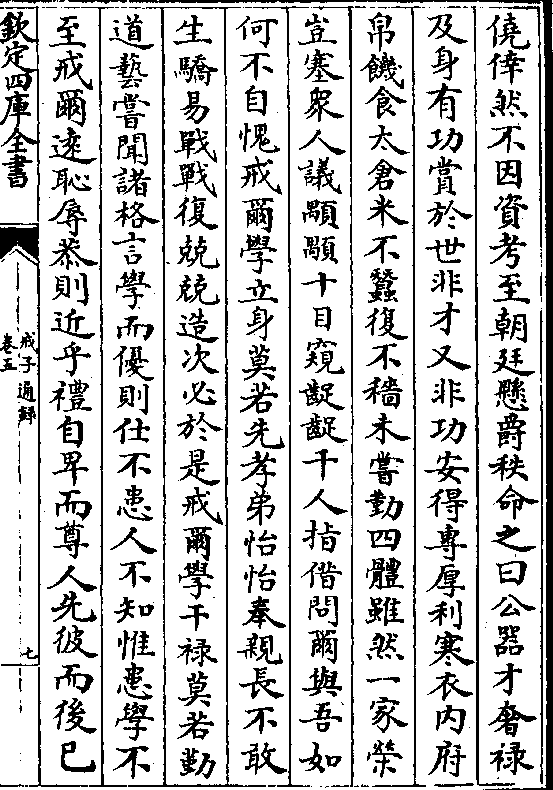 僥倖然不因資考至朝廷懸爵秩命之曰公器才奢祿
及身有功賞於世非才又非功安得專厚利寒衣内府
帛饑食太倉米不蠶復不穡未嘗勤四體雖然一家榮
豈塞衆人議顒顒十目窺齪齪千人指借問爾與吾如
何不自愧戒爾學立身莫若先孝弟怡怡奉親長不敢
生驕易戰戰復兢兢造次必於是戒爾學干祿莫若勤
道藝嘗聞諸格言學而優則仕不患人不知惟患學不
至戒爾逺恥辱恭則近乎禮自卑而尊人先彼而後已
欽定四庫全書
戒子通録
卷五
七